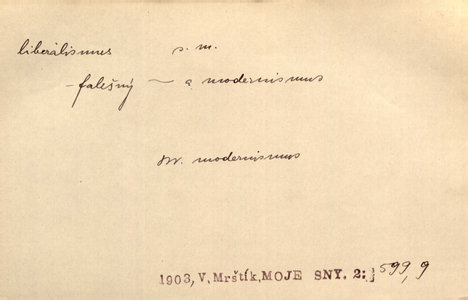 liberálismus s. m.
- falešný ~ a modernismus
sv. modernismus
1903, V. Mrštík, MOJE SNY. 2: } 599, 9